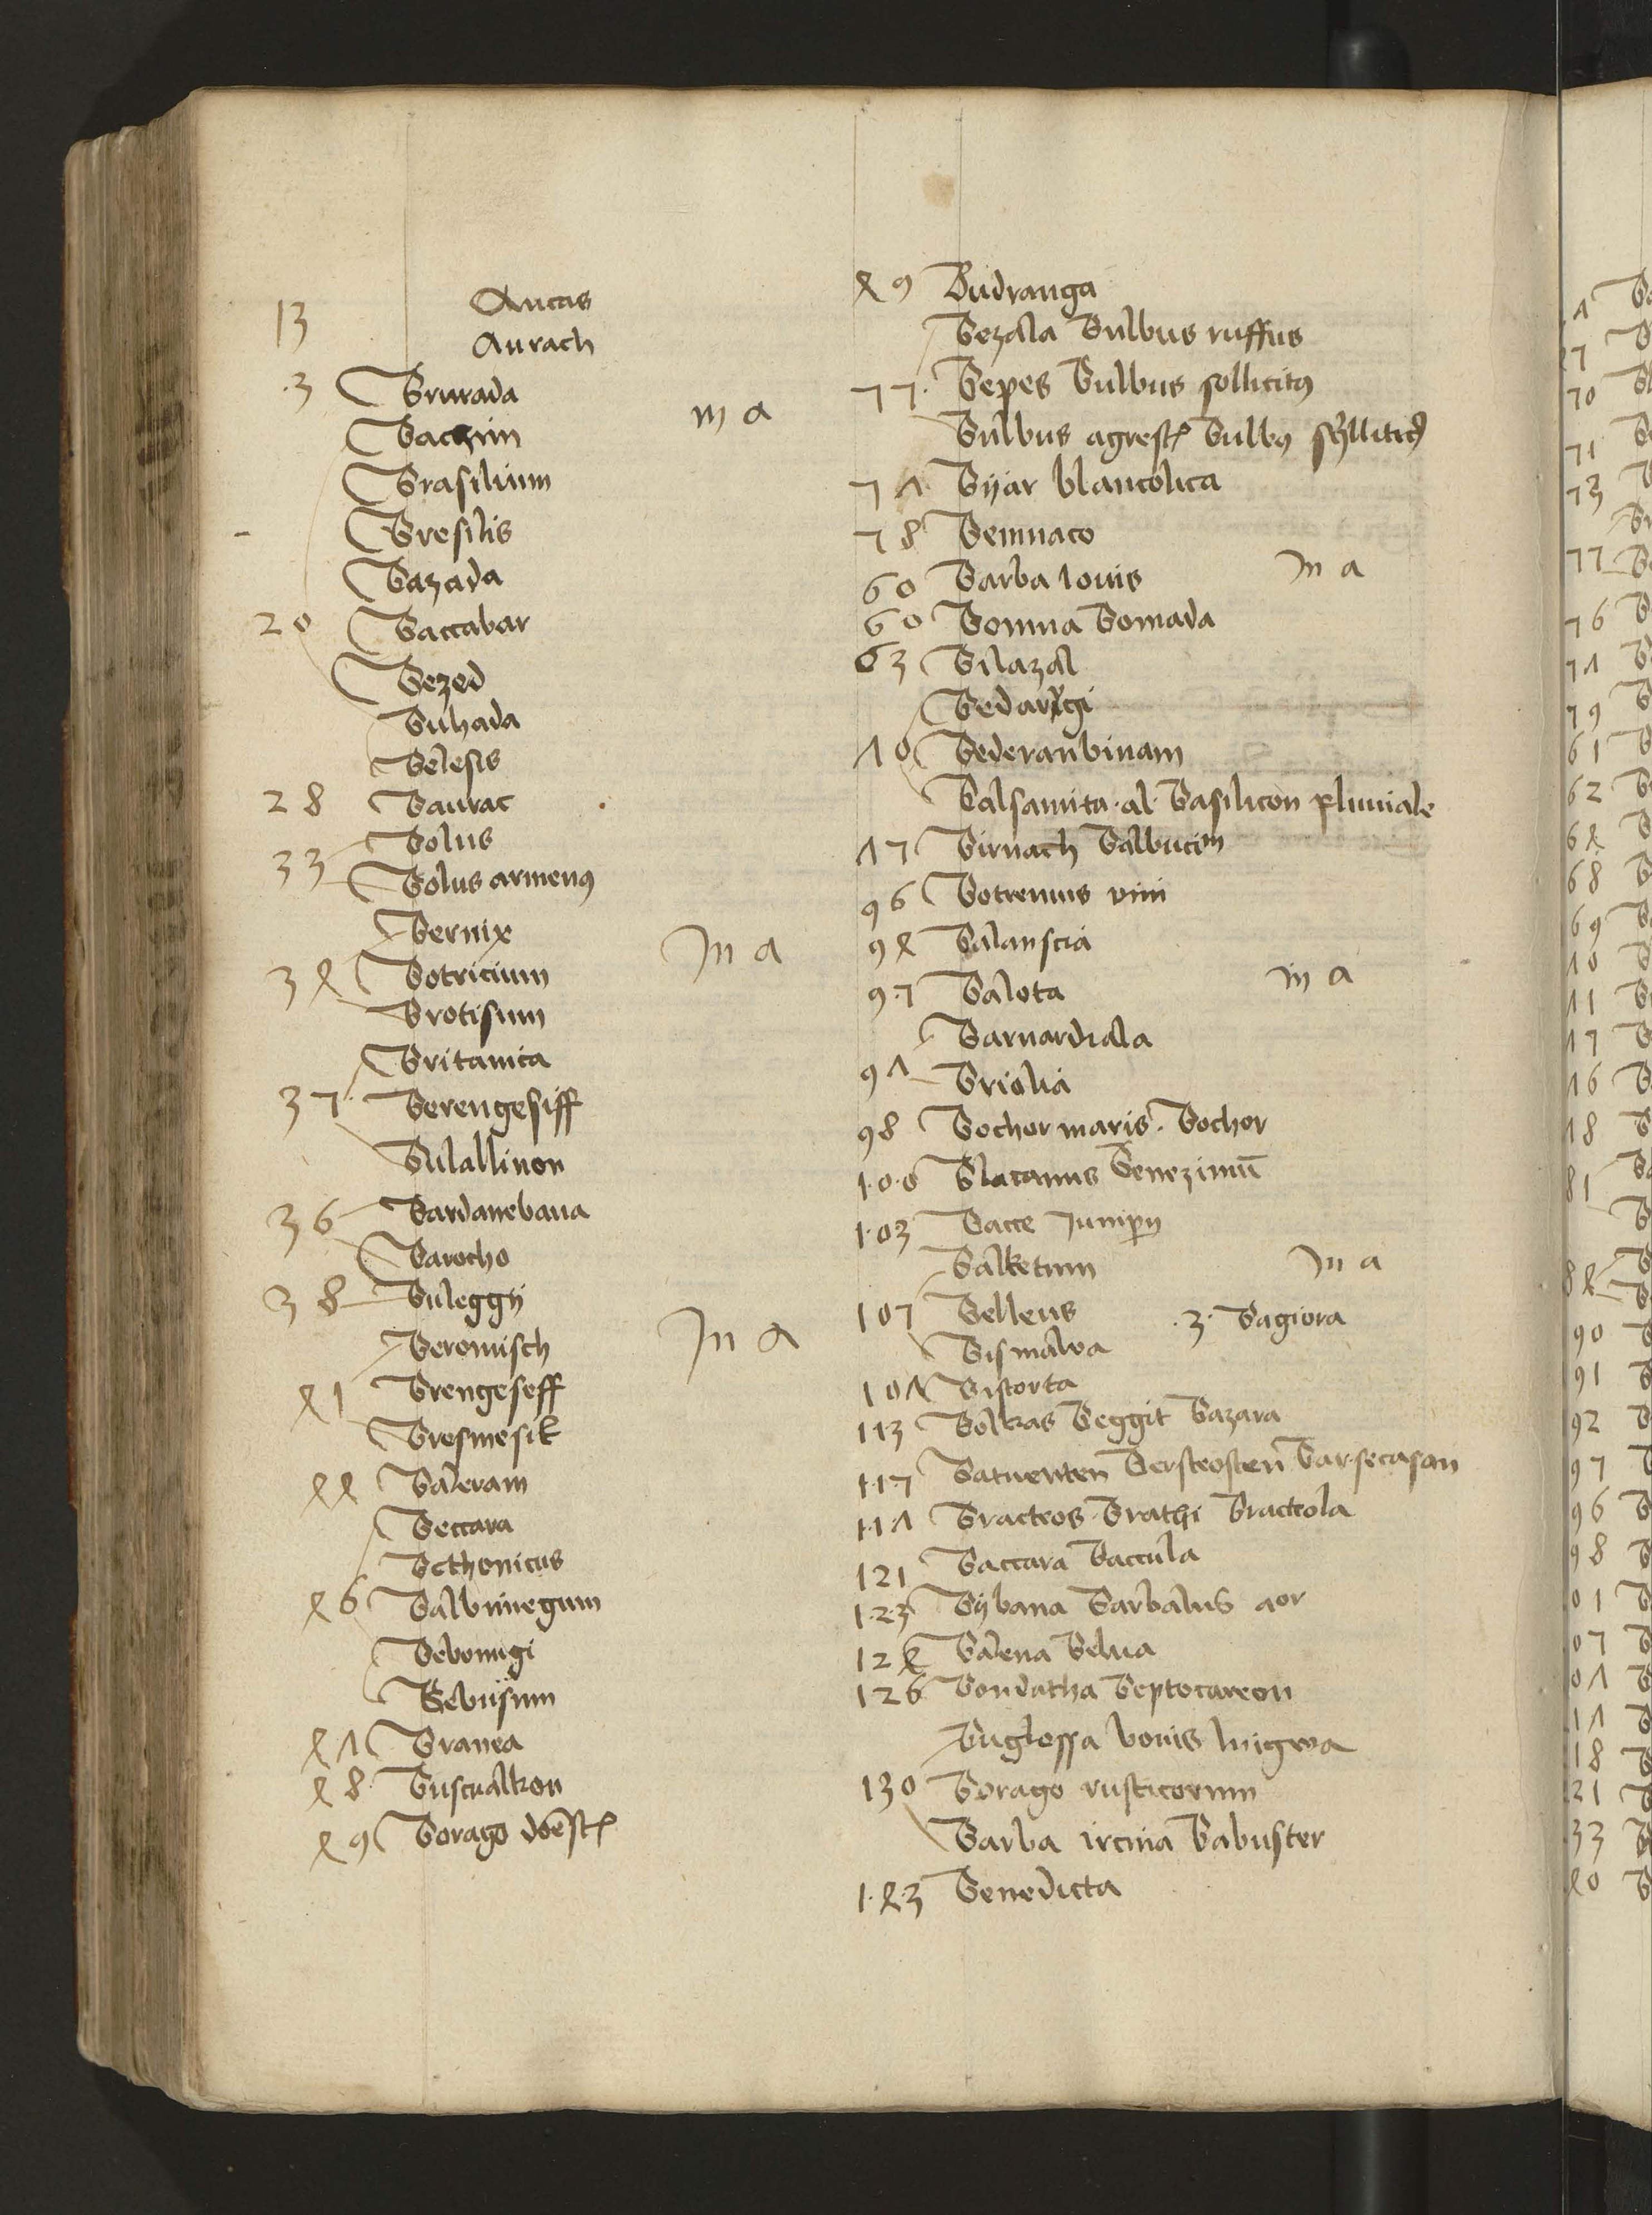 13 Aucas
Aurach
.3 Brurada
Bachim in a
Brasilium
Bresilis
Bazada
20 Baccabar
Bezed
Buhada
Belesis
28 Baurac
Bolus
33 Bolus armenus
Bernix
34 Botricium In a
Brotisum
Britanica
35 Berengesiff
Bulallinon
36 Bardanebana
Barocho
38 Buleggij
Beromisch In a
41 Brengeseff
Bresmesik
44 Baleram
Beccara
Bethonicus
46 Balbinegum
Bebonigi
Bebusum
47 Branea
48 Buscualkon
49 Borago domestica
49 Budranga
Bezala Bulbus ruffus
55. Bepes Bulbus sollicitus
Bulbus agrestis Bulbus
57 Bijar blancolica
58 Bennaco
60 Barba Iouis In a
60 Bomua Bomada
63 Bilazal
Bedarugi
70 Bederanbinam
Balsamita al Basilicon pluuiale
75 Birnach Balbucim
96 Botrenus vini
94 Balanscia
95 Balota in a
Barnardiala
97 Briolia
98 Bochor maris. Bochor
100 Blacanus Benezimum
103 Bacce Juniperi
Balketum In a
105 Belleus .3. Bagiora
Bismalva
107 Bistorta
113 Bolkas Beggit Bazara
115 Batuenten Bersteosten Barsecasan
117 Bracteos Brathi Bracteola
121 Baccara Baccula
123 Bijbana Barbalus aor
124 Balena Belua
126 Bondatha Beptocareon
Buglossa bouis lingwa
130 Borago rusticorum
Barba ircina Babuster
143 Benedicta